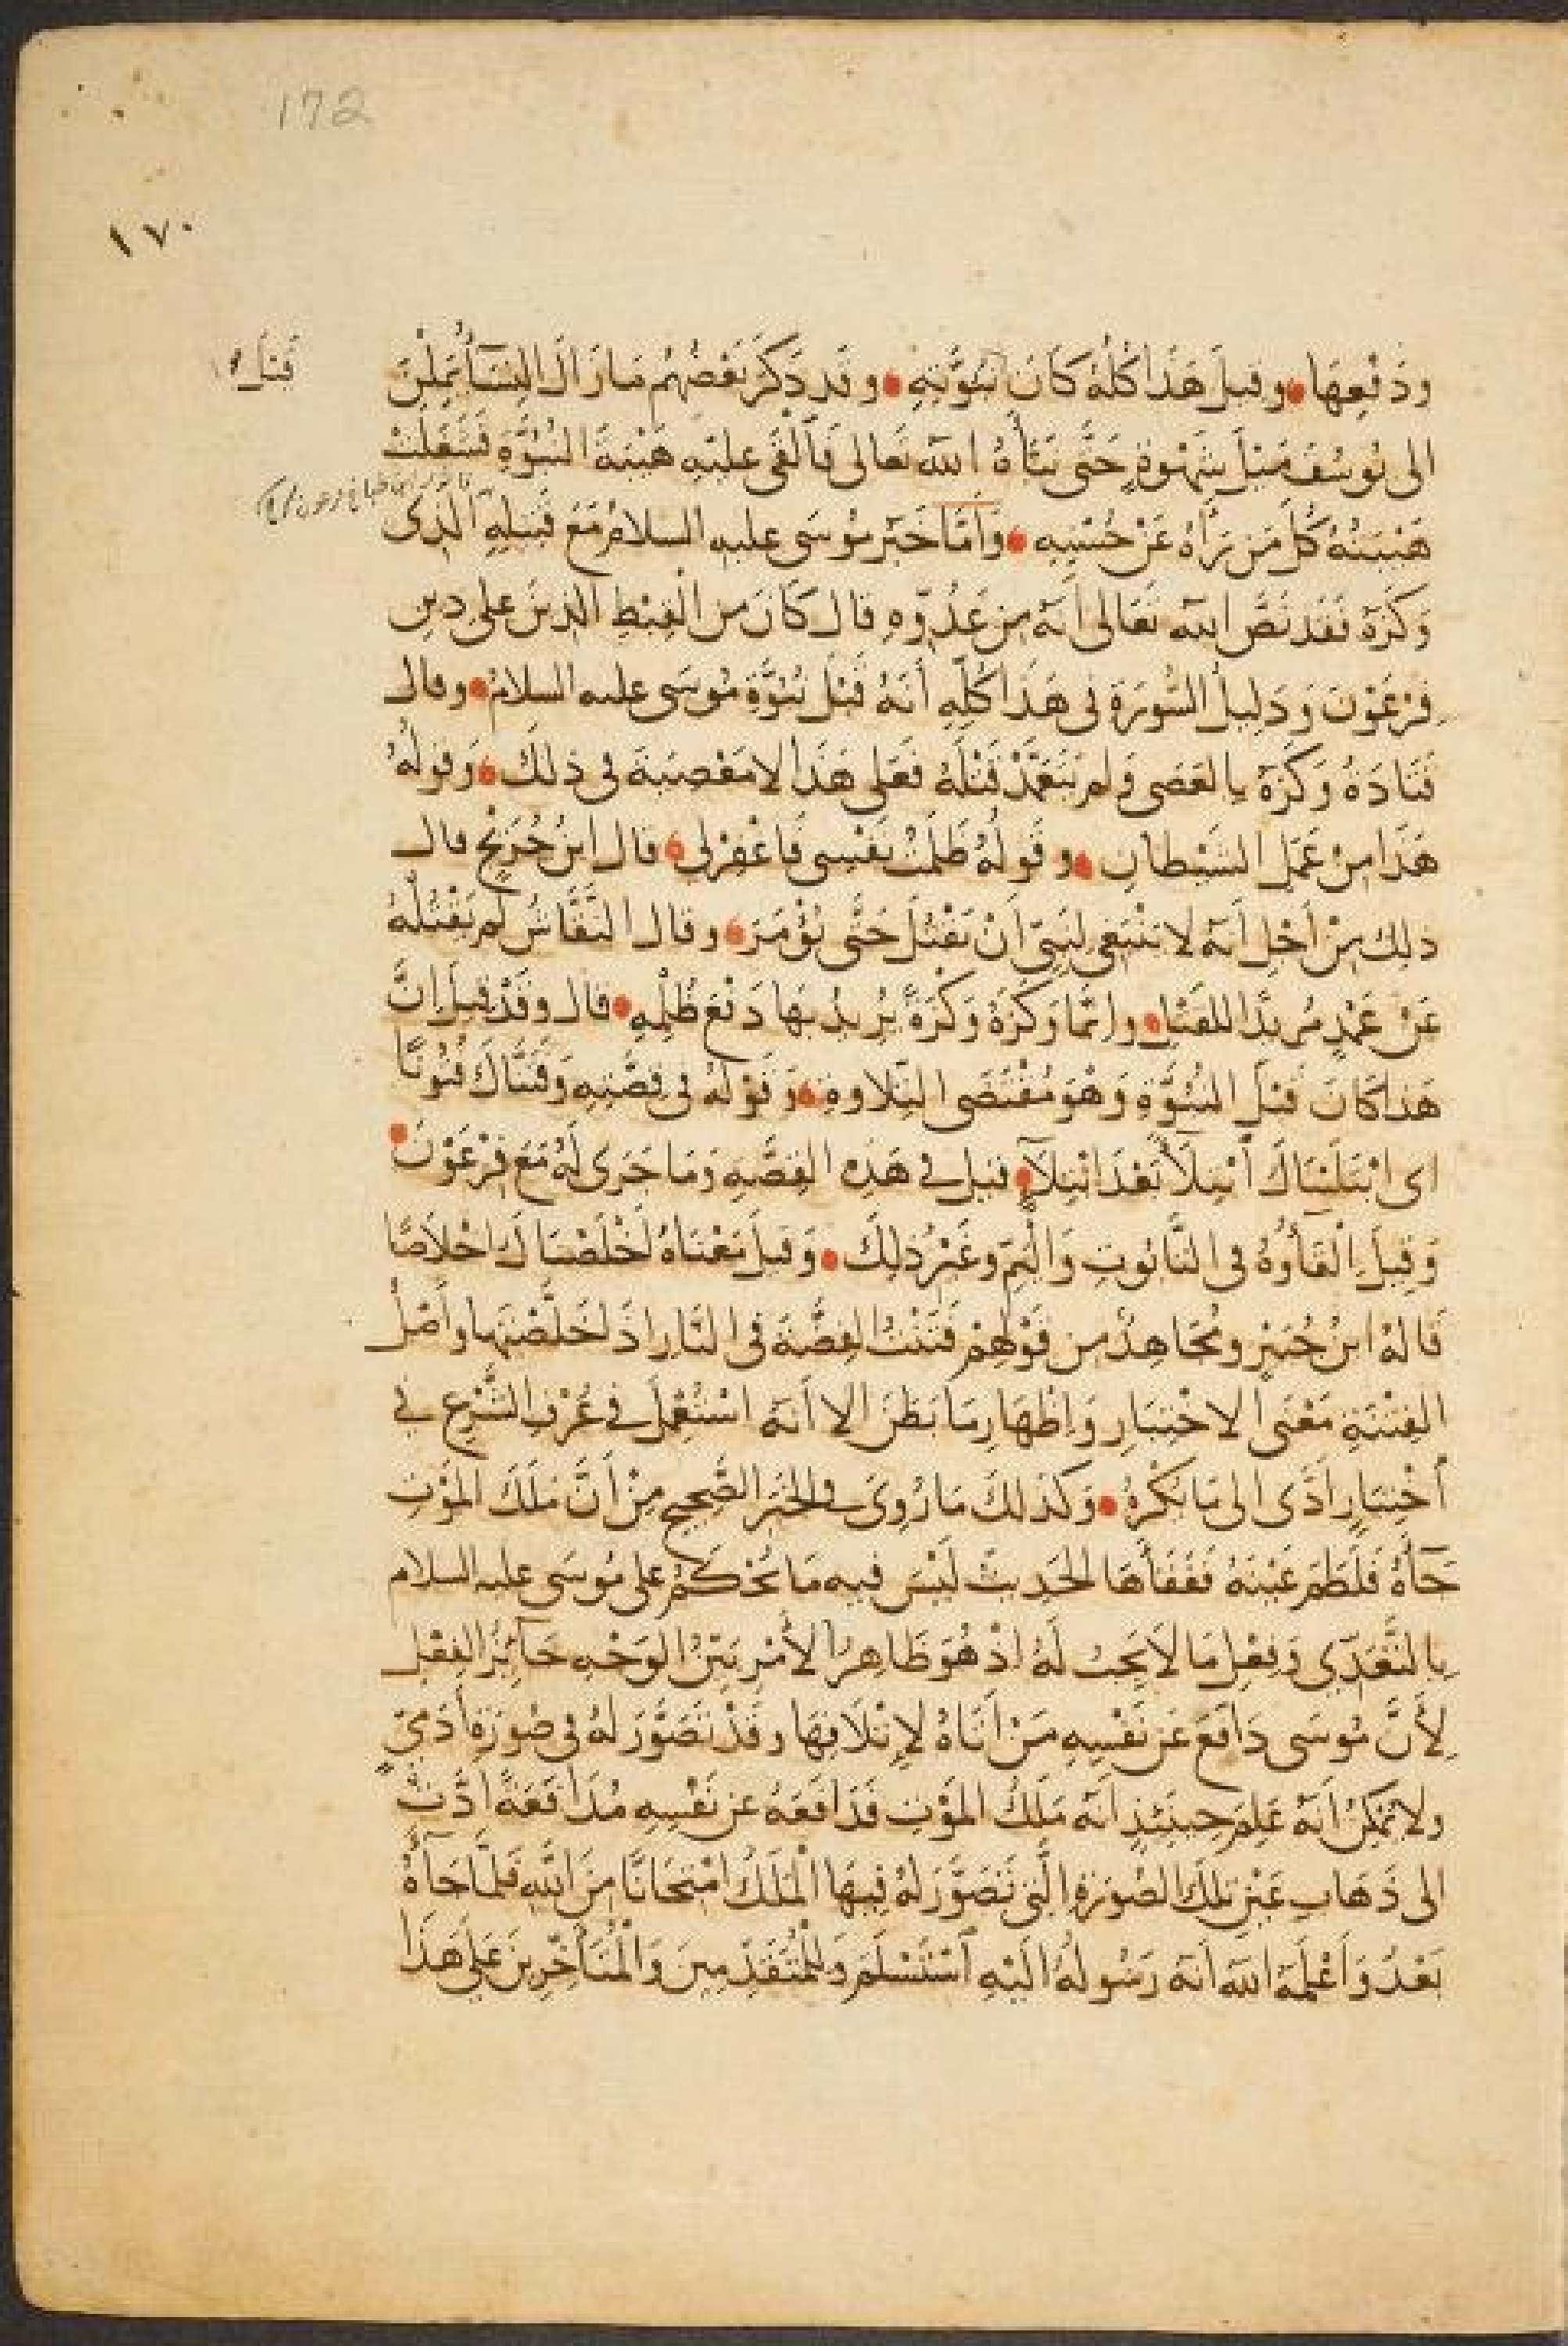 172
١٧٠
قبل
وَدَفْعِهَا وقيل هَذَا كُلُّهُ كَانَ نُبُوَّتِهِ وقد ذَكَرَ بَعْضُهُم مَا زَالَ النِّسَآءُ يَمِلْنَ
الى يُوسُفَ مَيْلَ شَهْوَةٍ حَتَّى نَبَّأَهُ الله تَعالى فَأَلْقَى عليه هَيْبَةَ النُّبُوَّةِ فَشَغَلَتْ
هَيْبَتُهُ كُلَّ مَن رَآهُ عَنْ حُسْنِهِ وَأَمَّا خَبَرُ مُوسَى عليه السلامُ مَعَ قَتِيلِهِ الَّذِى
وَكَزَهُ فَقَد نَصَّ الله تَعَالى أَنَّهُ مِن عَدُوِّهِ قال كَانَ مِنَ الْقِبْطِ الذينَ على دِينِ
فِرْعَوْنَ وَدَلِيلُ السُّورَةِ فى هَذَا كُلِّهِ أَنَّهُ قَبْلَ نُبُوَّةِ مُوسَى عليه السلامُ وقال
قَتَادَةُ وَكَزَهُ بالعَصَى وَلم يَتَعَمَّدْ قَتْلَهُ فَعَلى هَذَا لا مَعْصِيَةَ فى ذلكَ وَقَولُهُ
هَذَا مِنْ عَمَلِ الشَّيْطانِ وقَولُهُ ظَلَمْتُ نَفْسِى فَاغْفِرْ لى قال ابنُ جُرَيْجٍ قال
ذلك مِنْ أَجْلِ أَنَّهُ لا يَنْبَغى لِنَبِىٍّ أَنْ يَقْتُلَ حَتَّى يُؤْمَرَ وقال النَّقَّاشُ لَم يَقْتُلْهُ
عَنْ عَمْدٍ مُرِيدًا لِلقَتْلِ وانَّمَا وَكَزَهُ وَكْزَةً يُرِيدُ بِهَا دَفْعَ ظُلْمِهِ قال وقَدْ قِيلَ انَّ
هَذَا كَانَ قَبْلَ النُّبُوَّةِ وَهْوَ مُقْتَضَى التِّلاوةِ وَقَوْلُهُ فى قِصَّتِهِ وَفَتَنَّاكَ فُتُونًا
اى ابْتَلَيْنَاكَ ابْتِلآءً بَعْدَ ابْتِلآءٍ قيل فى هَذِهِ القِصَّةِ وَمَا جَرَى لَهُ مَعَ فِرْعَوْنَ
وَقِيلَ الْقَاؤُهُ فى التَّابُوتِ وَالْيَمِّ وغَيْرُ ذلِكَ وَقيل مَعْنَاهُ أَخْلَصْنَاكَ اخْلَاصًا
قَالَهُ ابنُ جُبَيْرٍ ومُجَاهِدٌ مِن قَوْلِهِمْ فَتَنْتُ الفِضَّةَ فى النَّارِ اذَا خَلَّصْتَهَا وأَصْلُ
الفِتْنَةِ مَعْنَى الاخْتِبَارِ وَاظْهَارِ مَا بَطَنَ الا أَنَّهُ اسْتُعْمِلَ فى عُرْفِ الشَّرْعِ فى
اخْتِبَارٍ أَدَّى الى مَا يُكْرَهُ وَكَذلكَ مَا رُوِىَ فى الخَبَرِ الصَّحِيحِ مِنْ أَنَّ مَلَكَ المَوْتِ
جَآءَهُ فَلَطَمَ عَيْنَهُ فَفَقَأَهَا الحَدِيثَ لَيْسَ فيهِ مَا يُحْكَمُ على مُوسَى عليه السلام
بِالتَّعَدِّى وَفِعْلِ مَا لا يَجِبُ لَهُ اذْ هُوَ ظَاهِرُ الأَمْرِ بَيِّنُ الوَجْهِ جَآئِزُ الفِعْلِ
لِأَنَّ مُوسَى دَافَعَ عَن نَفْسِهِ مَنْ أَتَاهُ لِإِتْلَافِهَا وقَدْ تَصَوَّرَ لَهُ فى صُورَةِ آدَمِىٍّ
ولا يُمْكِنُ أَنَّهُ عَلِمَ حِينَئِذٍ أَنَّهُ مَلَكُ المَوْتِ فَدَافَعَهُ عن نَفْسِهِ مُدَافَعَةً أَدَّتْ
الى ذَهَابِ عَيْنِ تِلكَ الصُّورَةِ الَّتى تَصَوَّرَ لَهُ فِيهَا الْمَلَكُ امْتِحَانًا مِنَ اللهِ فَلَمَّا جَآءَهُ
بَعْدُ وَأَعْلَمَهُ الله أَنَّهُ رَسُولُهُ الَيْهِ اسْتَسْلَمَ وَلِلْمُتَقَدِّمِينَ وَالْمُتَأَخِّرِينَ عَلى هَذَا